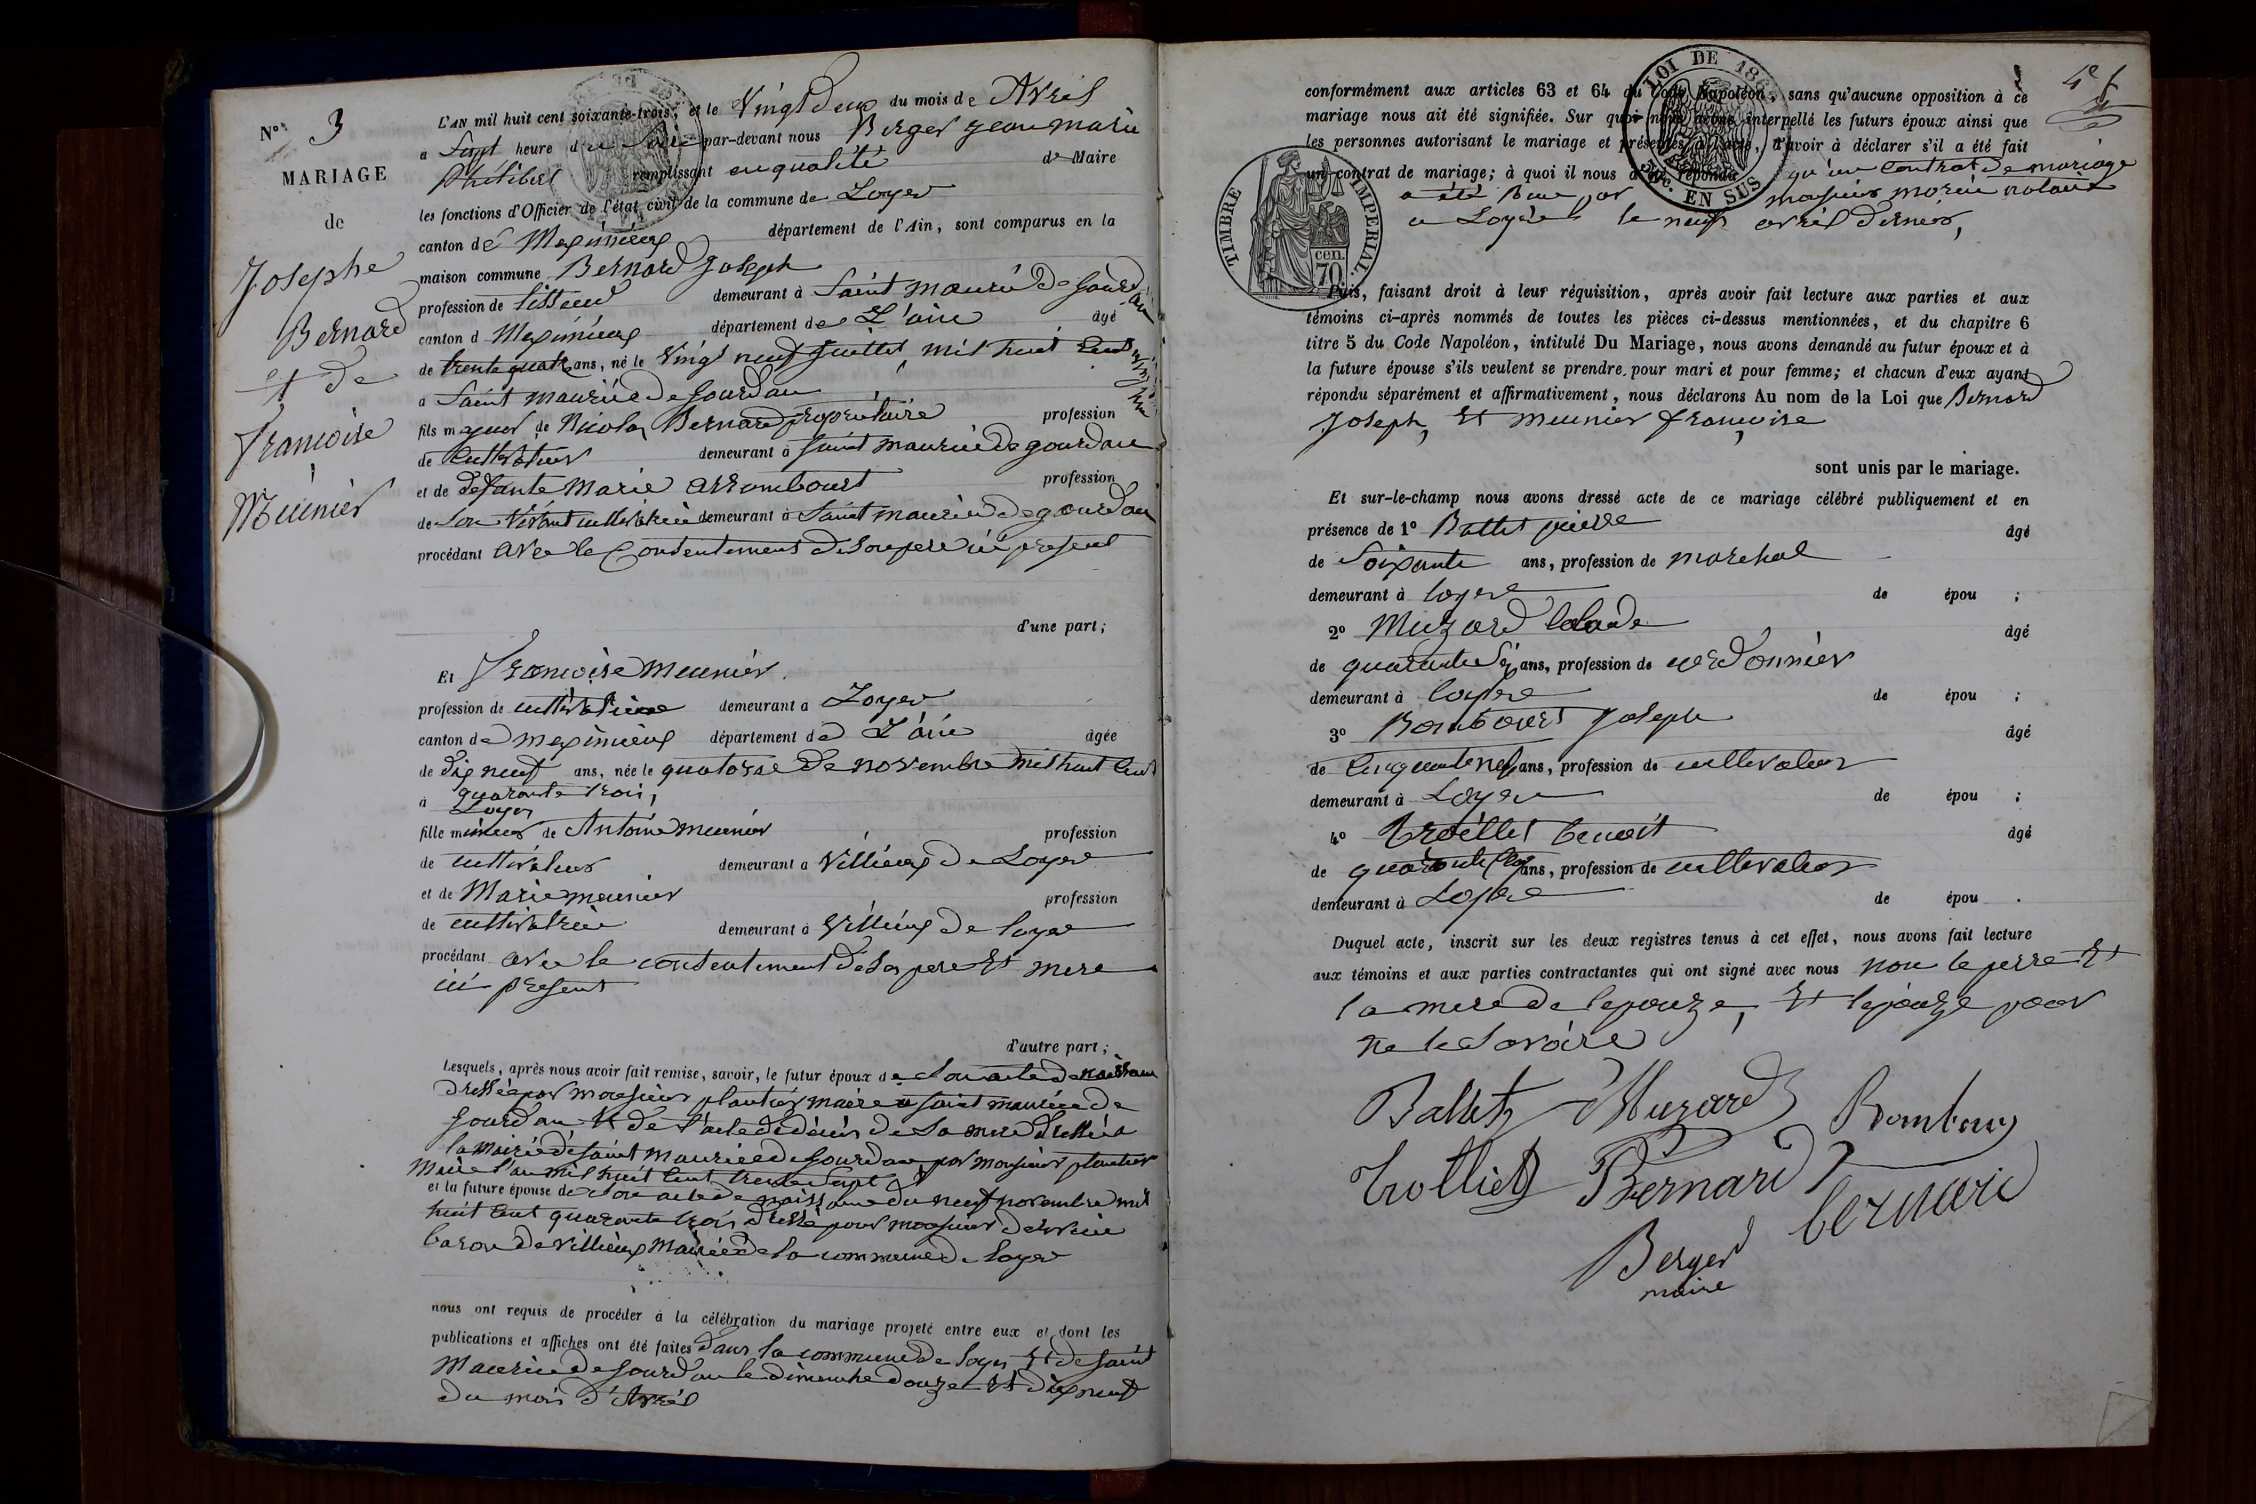 N° 3
MARIAGE
de
Josephe
Bernard
et de
Francoise
Meunier
L'AN mil huit cent soixante-trois, et le Vingt deux du mois de Avril
a Sept heure du Soir par-devant nous Berger jean marie
Philibert remplissant en qualité de Maire
les fonctions d'Officier de l'état civil de la commune de Loyes
canton de Meximieux département de l'Ain, sont comparus en la
maison commune Bernard Joseph
profession de tisseur demeurant à Saint mauri de gourdan
canton d Meximieux département de L'ain âgé
de trente quatre ans, né le Vingt neuf Juillet mil huit cent
a Saint maurice de Gourdan
fils majeur de Nicolas Bernard propriétaire profession
de Cultivateur demeurant à Saint maurice de gourdan
et de defunte Marie Arrombourt profession
de Son Vivant cultivatrice demeurant à Saint maurice de gourdan
procédant avec le Consentement de son pere ici present
d'une part;
Et Francoise meunier
profession de cultivatrice demeurant a Loyes
canton de meximieux département de L'ain âgée
de dix neuf ans, née le quatorse de novembre mil huit cent
quarante trois,
à Loyes
fille mineur de Antoine meunier profession
de cultivateur demeurant a Villieux de Loyes
et de Marie meunier profession
de cultivatrice demeurant à Villieux de loyes
procédant avec le consentement de son pere et mere
ici présent
d'autre part;
Lesquels, après nous avoir fait remise, savoir, le futur époux de Son acte de naissance
dressée par monsieur plantier maire a saint maurice de
gourdan et de l'acte de décès de la mere dressée a
la Mairie de saint maurice de gourdan par monsieur plantier
Maire l'an mil huit cent trente Sept
et la future épouse de Son acte de naissance du neuf novembre mil
huit cent quarante trois dressé pour monsieur
baron de Villieux Maire de la commune de loyes
nous ont requis de procéder à la célébration du mariage projeté entre eux et dont les
publications et affiches ont été faites dans la commune de loyes et de saint
Maurice de gourdan le dimenche douze et dix neuf
du mois d'Avril
conformément aux articles 63 et 64 du Code Napoléon, sans qu'aucune opposition à ce
mariage nous ait été signifiée. Sur quoi nous avons interpellé les futurs époux ainsi que
les personnes autorisant le mariage et présentes à l'acte, d'avoir à déclarer s'il a été fait
un contrat de mariage; à quoi il nous a été répondu qu'un Contrat de mariage
a été Recu par monsieur morin notaire
a Loyes le neuf avril dernier,
LOI DE 186
EN SUS
TIMBRE IMPERIAL.
cen.
70
Puis, faisant droit à leur réquisition, après avoir fait lecture aux parties et aux
témoins ci-après nommés de toutes les pièces ci-dessus mentionnées, et du chapitre 6
titre 5 du Code Napoléon, intitulé Du Mariage, nous avons demandé au futur époux et à
la future épouse s'ils veulent se prendre pour mari et pour femme; et chacun d'eux ayant
répondu séparément et affirmativement, nous déclarons Au nom de la Loi que Bernard
Joseph, et meunier francoise
sont unis par le mariage.
Et sur-le-champ nous avons dressé acte de ce mariage célébré publiquement et en
présence de 1° Ballet pierre âgé
de Soixante ans, profession de marechal
demeurant à loyes de épou ;
2° Muzard Claude âgé
de quarante Six ans, profession de cordonnier
demeurant à loyes de épou ;
3° Rambourt Joseph âgé
de Cinquante neuf ans, profession de cultivateur
demeurant à Loyes de épou ;
4° trolliet benoit âgé
de quarante ans, profession de cultivateur
demeurant à Loyes de épou .
Duquel acte, inscrit sur les deux registres tenus à cet effet, nous avons fait lecture
aux témoins et aux parties contractantes qui ont signé avec nous non le perre et
la mere de lepouze, et lepouze pour
ne le Savoire
Ballet Muzard Rambour
trolliet Bernard
bernard
Berger
maire